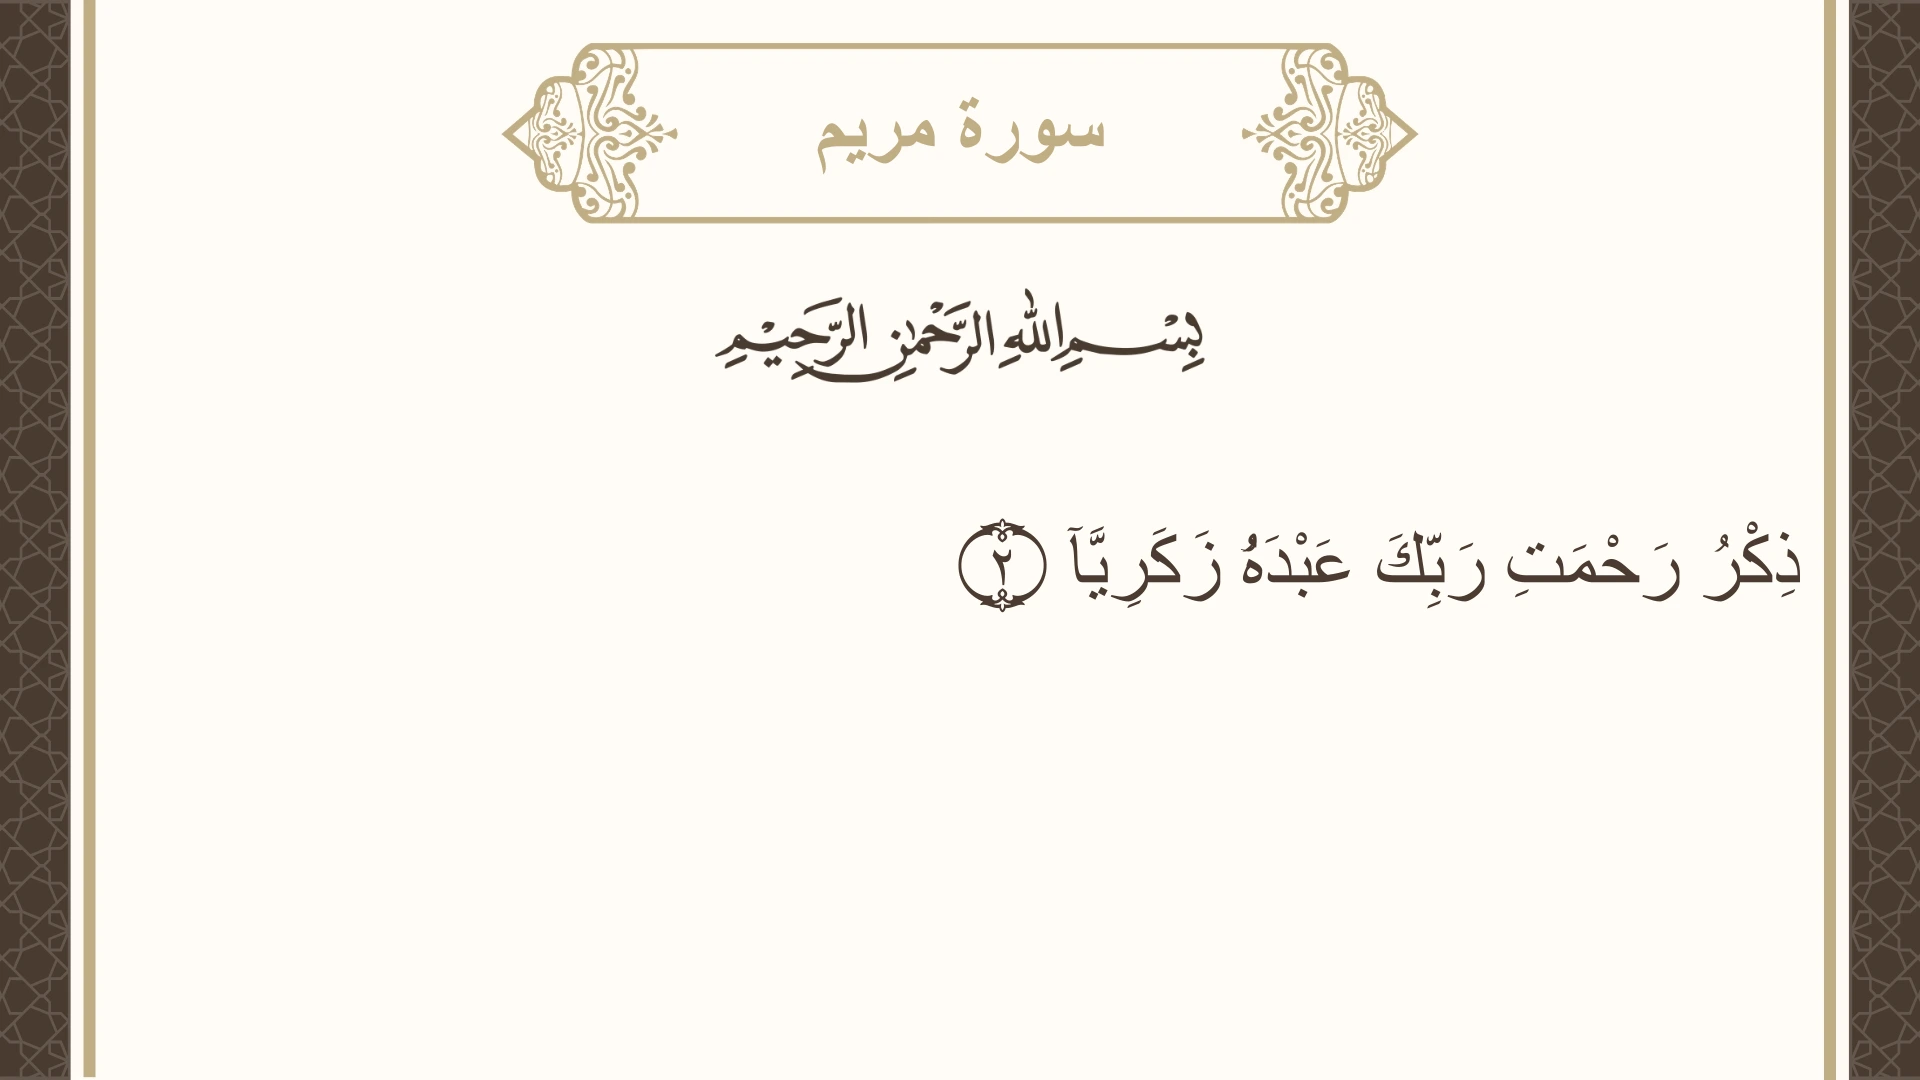 سورة مريم
بِسْمِ اللهِ الرَّحْمٰنِ الرَّحِيْمِ
ذِكْرُ رَحْمَتِ رَبِّكَ عَبْدَهُۥ زَكَرِيَّآ ٢